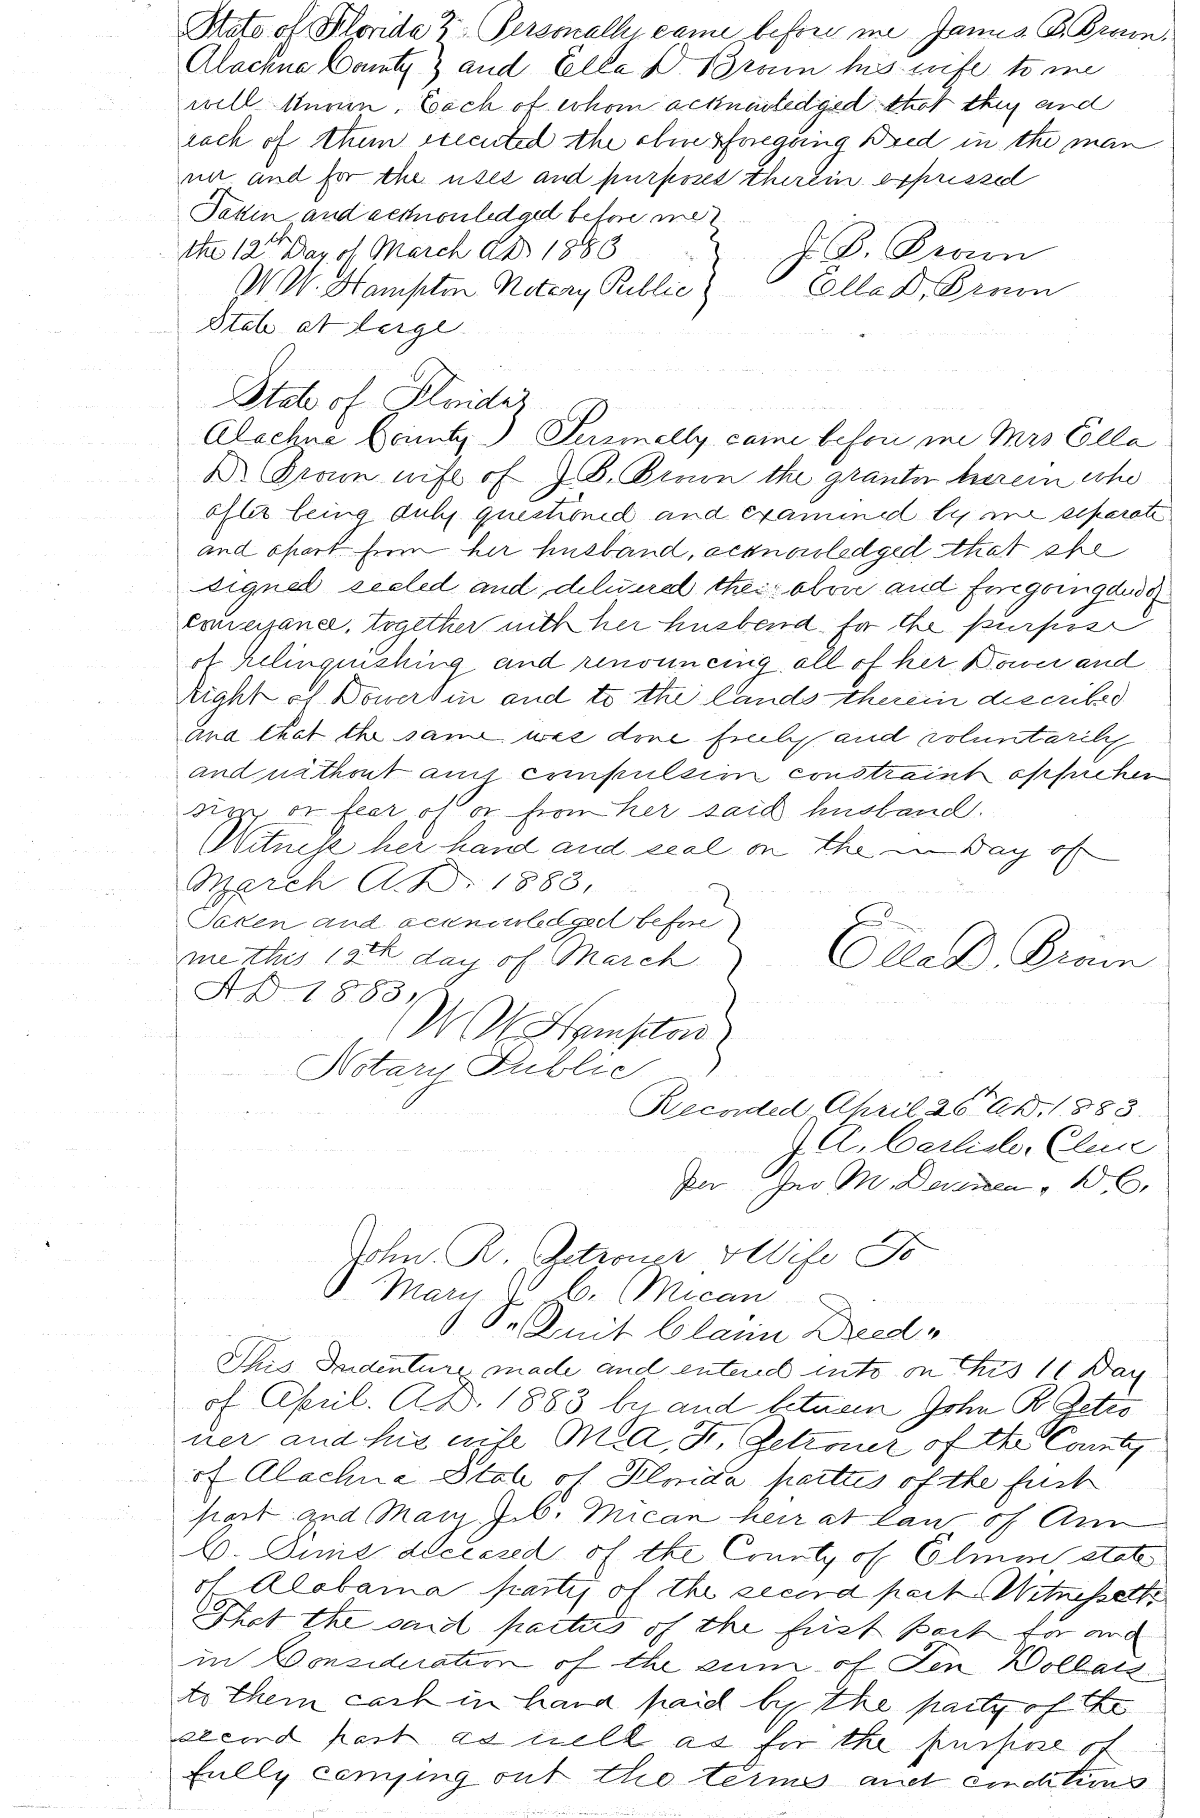 State of Florida } Personally came before me James B. Brown.
Alachua County } and Ella D. Brown his wife to me
well known. Each of whom acknowledged that they and
each of them executed the above & foregoing Deed in the man
ner and for the uses and purposes therein expressed
Taken and acknowledged before me }
the 12th Day of March A.D. 1883 J. B. Brown
W W. Hampton Notary Public } Ella D. Brown
State at large
State of Florida }
Alachua County ) Personally came before me Mrs Ella
D. Brown wife of J. B. Brown the grantor herein who
after being duly questioned and examined by me separate
and apart from her husband, acknowledged that she
signed sealed and delivered the above and foregoing deed of
conveyance, together with her husband for the purpose
of relinquishing and renouncing all of her Dower and
right of Dower in and to the lands therein described
and that the same was done freely and voluntarily
and without any compulsion constraint apprehen
sion or fear of or from her said husband.
Witness her hand and seal on the Day of
March A.D. 1883.
Taken and acknowledged before }
me this 12th day of March Ella D. Brown
A D 1883,
W W Hampton
Notary Public
Recorded April 26th A.D. 1883.
J. A. Carlisle. Clerk
per Jno M. D. C.
John. R. Zetrouer & Wife To
Mary J. C. Mican
"Quit Claim Deed"
This Indenture made and entered into on this 11 Day
of April. A.D. 1883 by and between John R Zetro
uer and his wife M. A. F. Zetrouer of the County
of Alachua State of Florida parties of the first
part and Mary J. C. Mican heir at law of Ann
C. Sims deceased of the County of Elmore state
of Alabama party of the second part Witnesseth.
That the said parties of the first part for and
in Consideration of the sum of Ten Dollars
to them cash in hand paid by the party of the
second part as well as for the purpose of
fully carrying out the terms and conditions